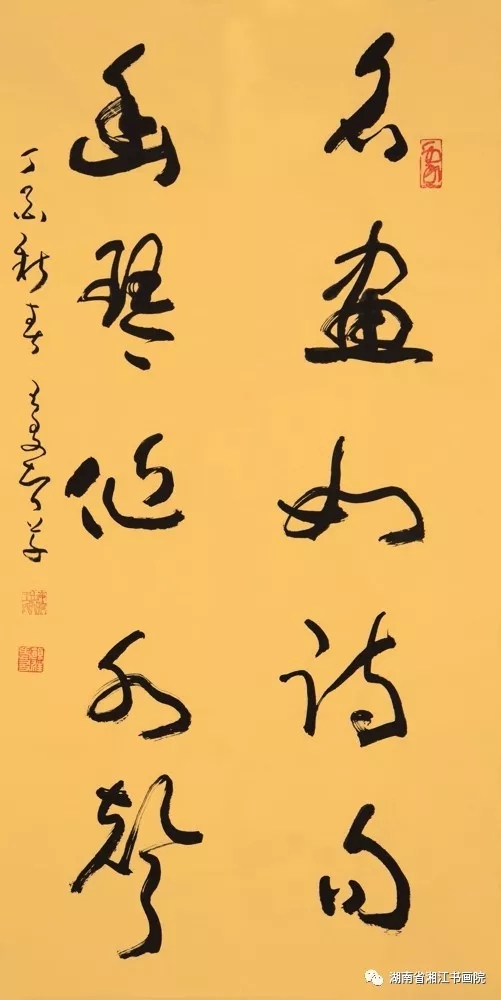 名畫如詩句
幽琴似水聲
丁酉
湖南省湘江书画院